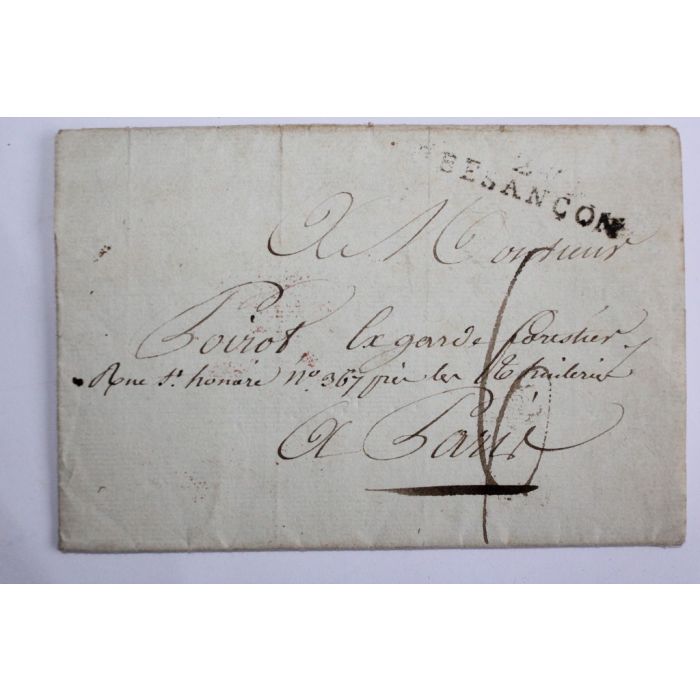 BESANÇON
A Monsieur
Poirot Ex garde forestier
Rue St honoré No 367 près les Thuileries
A Paris
6